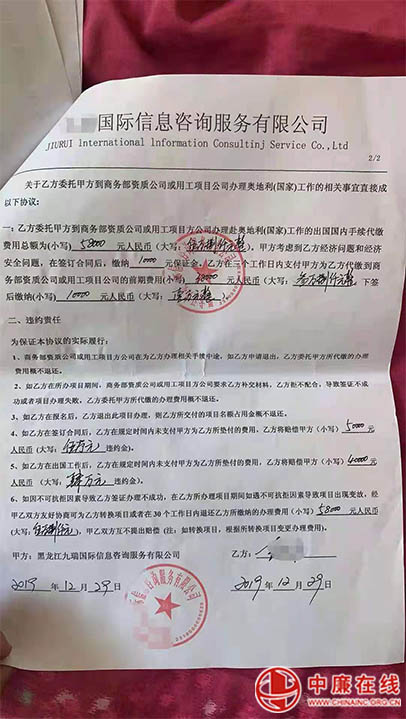 国际信息咨询服务有限公司
JIURUI lnternational lnformation Consultinj Service Co.,Ltd
2/2
关于乙方委托甲方到商务部资质公司或用工项目公司办理奥地利(国家)工作的相关事宜直接成
以下协议:
一:乙方委托甲方到商务部资质公司或用工项目方公司办理赴奥地利(国家)工作的出国国内手续代缴
费用总额为(小写)58000元人民币(大写:伍万捌仟元整),甲方考虑到乙方经济问题和经济
安全问题,在签订合同后,缴纳1000元保证金。乙方在三个工作日内支付甲方为乙方代缴到商
务部资质公司或用工项目公司的前期费用(小写)元人民币(大写:万捌仟元整 下签
后缴纳(小写)10000元人民币(大写:壹万元整
二、违约责任
为保证本协议的实际履行:
1、商务部资质公司或用工项目方公司在为乙方办理相关手续中途,如乙方申请退出,乙方委托甲方所代缴的办理
费用概不退还。
2、如乙方在所办项目期间,商务部资质公司或用工项目方公司要求乙方补交材料,乙方拒不配合,导致签证不成
功或者项目办理失败,乙方委托甲方代缴的办理费用概不退还。
3、如乙方在报名后,乙方退出此项目办理,则乙方所交付的项目名额占用金概不退还。
4、如乙方在签订合同后,乙方在规定时间内未支付甲方为乙方所垫付的费用,乙方将赔偿甲方(小写)5000元
人民币(大写)伍仟元违约金)。
5、如乙方在出国工作后,乙方在规定时间内未支付甲方为乙方所垫付的费用,乙方将赔偿甲方(小写)40000元
人民币(大写)肆万元违约金)。
6、如因不可抗拒因素导致乙方签证办理不成功,在乙方所办理项目期间如遇不可抗拒因素导致项目出现变故,经
甲乙双方友好协商可为乙方转换项目或者在30个工作日内退还乙方所缴纳的办理费用(小写)58000元
(大写)伍万捌仟元),甲乙双方互不提出赔偿(注:如转换项目,根据所转换项目变更办理费用)。
甲方:黑龙江九瑞国际信息咨询服务有限公司 乙方:
2019年12月29日 2019年12月29日
中廉在线
WWW.CHINAINC.ORG.CN